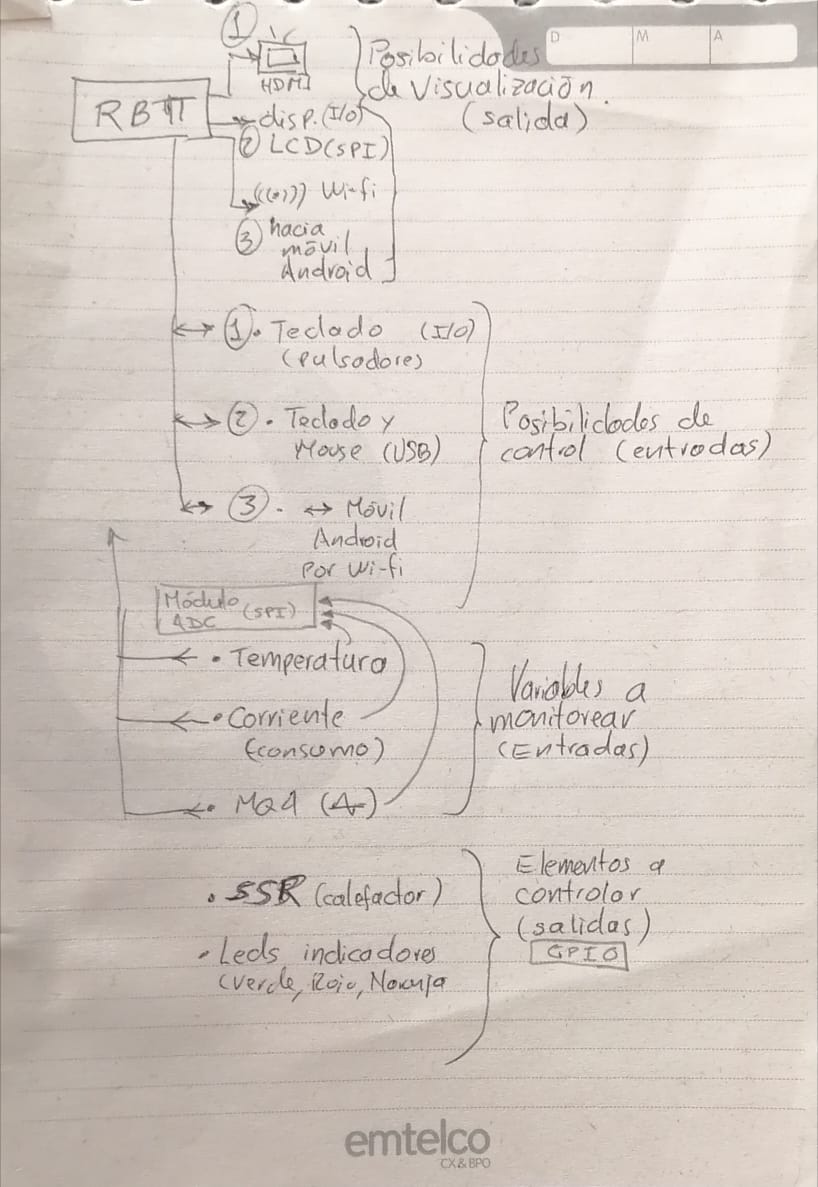 D M A
①
HDMI
Posibilidades
de Visualización.
(salida)
RBπ
disp. (I/O)
② LCD (SPI)
((·))) Wi-fi
③ hacia
móvil
Android
①. Teclado (I/O)
(pulsadores)
②. Teclado y
Mouse (USB)
Posibilidades de
control (entradas)
③. ↔ Móvil
Android
por Wi-fi
Módulo (SPI)
ADC
• Temperatura
• Corriente
(consumo)
Variables a
monitorear
(Entradas)
• SSR (calefactor)
• Leds indicadores
(verde, Rojo, Naranja
Elementos a
controlar
(salidas)
GPIO
emtelco
CX&BPO